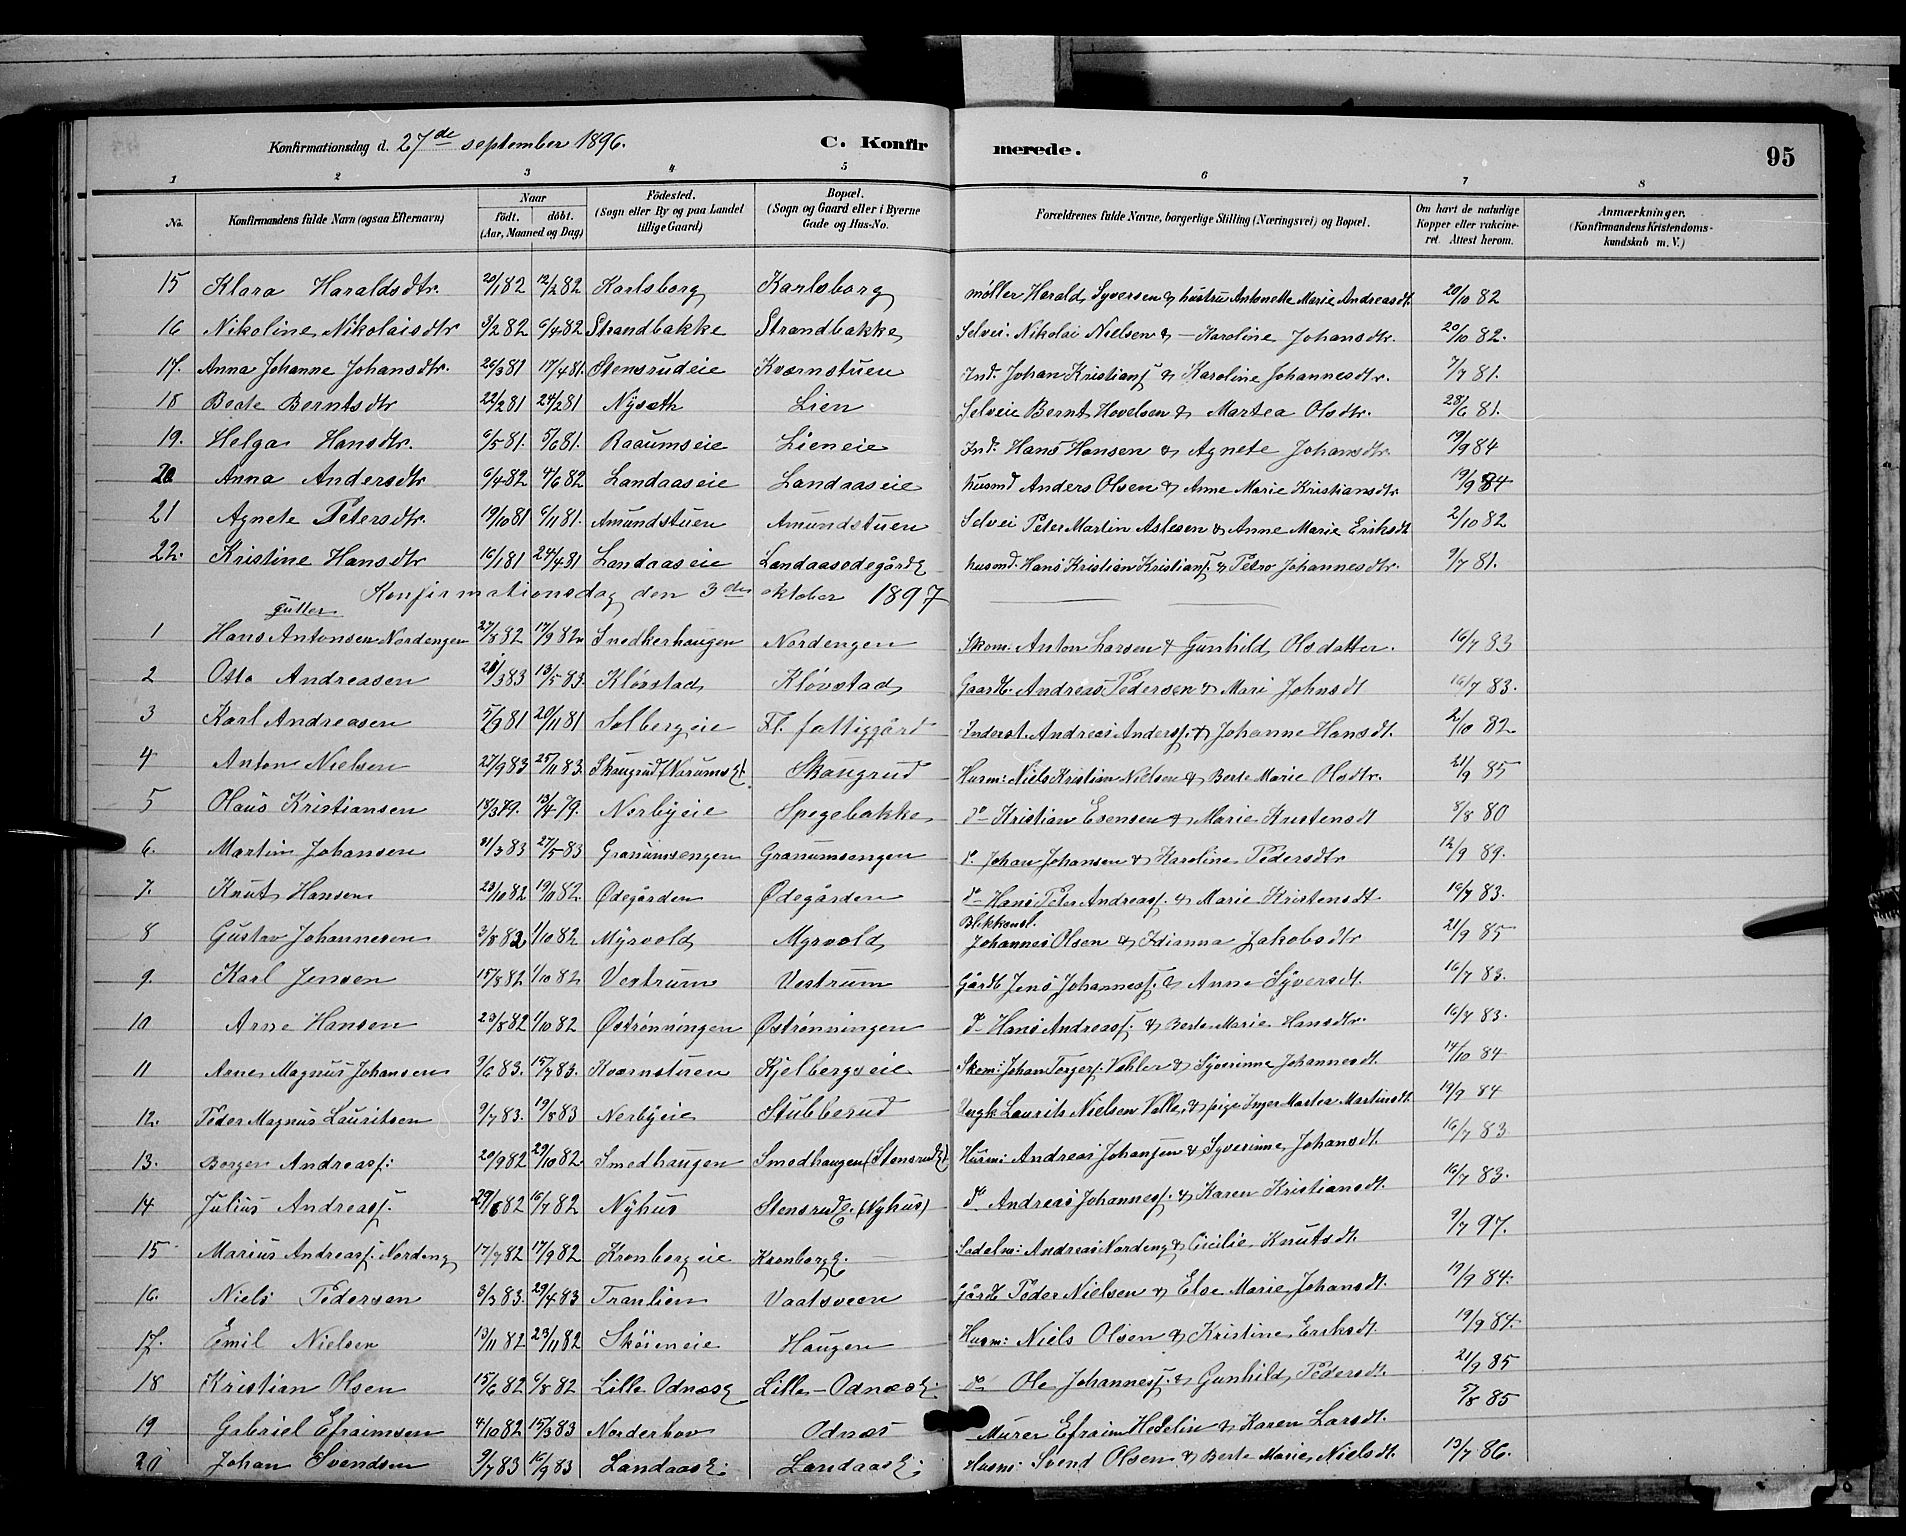 Konfirmationsdag d. 27de september 1896. C. Konfir merede. 95
1 2 3 4 5 6 7 8
No. Konfirmandens fulde Navn (ogsaa Efternavn) Naar født. døbt. (Aar, Maaned og Dag) Födested. (Sogn eller By og paa Landet tillige Gaard) Bopæl. (Sogn og Gaard eller i Byerne Gade og Hus-No. Forældrenes fulde Navne, borgerlige Stilling (Næringsvei) og Bopæl. Om havt de naturlige Kopper eller vakcineret. Attest herom. Anmærkninger. (Konfirmandens Kristendomskundskab m. V.)
15 Klara Haraldsdtr. 20/1 82 12/2 82 Karlsborg Karlsborg møller Herald Syversen & hustru Antonette Marie Andreasdt. 20/10 82
16 Nikoline Nikolaisdtr 3/2 82 6/4 82 Strandbakke Strandbakke Selvei. Nikolai Nielsen & — Karoline Johansdtr. 20/10 82.
17. Anna Johanne Johansdtr. 26/3 81 17/4 81. Stensrudeie Kværnstuen Ind. Johan Kristians. & Karoline Johannesdtr. 7/7 81.
18 Beate Berntsdtr 22/2 81 24/2 81 Nysæth Lien Selveie Bernt Hovelsen & Martea Olsdtr. 28/6 81.
19. Helga Hansdtr. 6/5 81. 5/6 81. Raaumseie Lieneie Ind. Hans Hansen & Agnete Johansdtr. 19/9 84
20 Anna Andersdtr 6/4 82 4/6 82 Landaaseie Landaaseie husmd Anders Olsen & Anne Marie Kristiansdtr. 19/9 84
21 Agnete Petersdtr. 19/10 81 6/11 81. Amundstuen Amundstuen Selvei Peter Martin Aslesen & Anne Marie Eriksdt 2/10 82
22. Kristine Hansdtr 16/1 81 24/4 81 Landaaseie Landaasødegårde husmd. Hans Kristian Kristians. & Petra Johannesdtr. 9/7 81.
Konfirmationsdag den 3die oktober 1897
gutter
1 Hans Antonsen Nordengen 27/8 82 17/9 82 Snedkerhaugen Nordengen Skom: Anton Larsen & Gunhild Olsdatter. 16/7 83
2 Otto Andreasen 20/3 83 13/5 83. Kløvstad Kløvstad Gaardb. Andreas Pedersen & Mari Johnsdt 16/7 83.
3 Karl Andreasen 5/9 81 20/11 81 Solbergeie Fl. fattiggård Inderst. Andreas Anders. & Johanne Hansdt. 2/10 82
4 Anton Nielsen 27/9 83 25/11 83. Skaugrud Skaugrud Husm: Niels Kristian Nielsen & Berte Marie Olsdtr. 21/9 85
5 Olaus Kristiansen 18/3 79. 13/4 79. Nerbyeie Spegebakke do Kristian Evensen & Marie Kristensdt 8/8 80
6. Martin Johansen 31/3 83 27/5 83 Granumsengen Granumsengen do Johan Johansen & Karoline Pedersdtr 12/9 89.
7. Knut Hansen 23/10 82 19/11 82. Ødegården Ødegården do Hans Peter Andreas. & Marie Kristensdt 16/7 83.
8 Gustav Johannesen 3/8 82 1/10 82 Myrvold Myrvold Blikkensl. Johannes Olsen & Idianna Jakobsdtr 21/9 85
9. Karl Jensen 15/8 82 1/10 82 Vestrum Vestrum Gårdb Jens Johanness. & Anne Syversdt. 16/7 83.
10 Arne Hansen 23/8 82 1/10 82 Østrønningen Østrønningen do Hans Andreas. & Berte Marie Hansdtr. 16/7 83.
11 Arne Magnus Johansen 9/6 83. 15/7 83. Kværnstuen Kjelbergseie Skom: Johan Torgers. Vøhler & Syverinne Johannesdt. 14/10 84
12. Peder Magnus Lauritsen 9/7 83. 19/8 83 Nerbyeie Stubberud Ungk. Laurits Nielsen Valle, & pige Inger Martea Martinsdt 19/9 84
13. Borger Andreass: 20/9 82 29/10 82. Smedhaugen Smedhaugen (Stensrude) Husm: Andreas Johansen & Syverinne Johansdt. 16/7 83
14 Julius Andreass. 29/6 82 16/7 82 Nyhus Stensrude. (Nyhus) do Andreas Johanness. & Karen Kristiansdt. 16/7 83.
15 Marius Andreass. Nordeng 17/7 82 17/9 82 Kronborgeie Kronborge. Sadelm: Andreas Nordeng & Cicilie Knutsdt. 9/7 97.
16. Niels Pedersen 3/3 83. 29/4 83 Tranlien Vaatsveen Gårdb Peder Nielsen & Else Marie Johansdt. 19/9 84.
17. Emil Nielsen 13/11 82 23/11 82 Skøieneie Haugen Husm: Niels Olsen & Kristine Eriksdt. 19/9 84.
18 Kristian Olsen 15/6 82 6/8 82 Lille Odnæse Lille-Odnæse. do Ole Johanness. & Gunhild Pedersdt. 21/9 85
19 Gabriel Efraimsen 4/10 82 15/3 83 Norderhov Odnæs Murer Efraim Hedelin & Karen Larsdt. 5/8 85
20 Johan Svendsen 9/7 83 16/9 83 Landaase. Landaase. Husm: Svend Olsen & Berte Marie Nielsdt. 13/7 86.